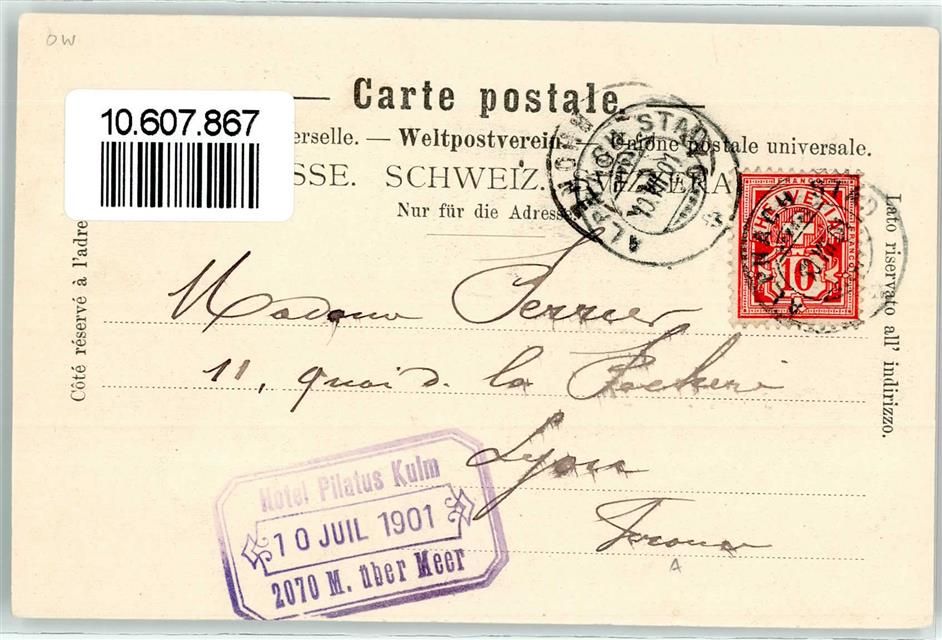 OW
Carte postale.
10.607.867
erselle. — Weltpostverein. — Unione postale universale.
SSE. SCHWEIZ. SVIZZERA
Nur für die Adresse
Côté réservé à l'adre
Lato riservato all' indirizzo.
ALPNACH-STAD
10.VII.01
FRANCO
HELVETIA
10
ALPNACH STAD
Madame Perrier
11, quai d. la Pecherie
Lyon
France
A
Hotel Pilatus Kulm
10 JUIL 1901
2070 M. über Meer